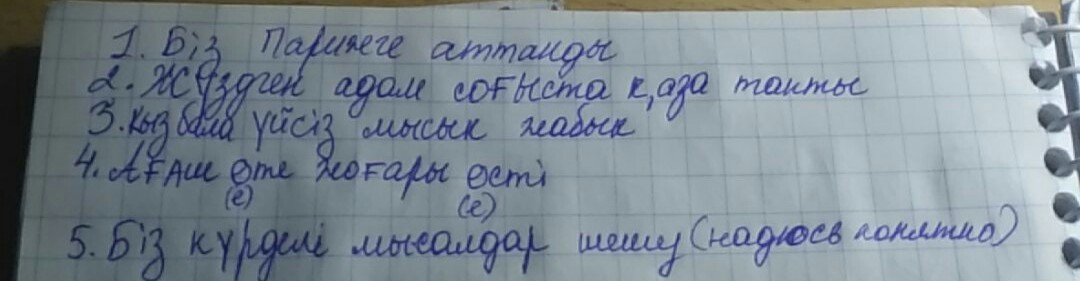 1. Біз Парижге аттанды
2. Жүздген адам соғыста қаза тапты
3. қыз бала үйсіз мысық жабық
4. Ағаш өте жоғары өсті
(е) (е)
5. Біз күрделі мысалдар шешу (надюсь понятно)